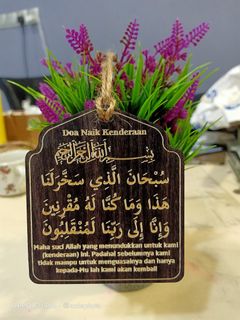 Doa Naik Kenderaan
بِسْمِ اللَّهِ الرَّحْمَٰنِ الرَّحِيمِ
سُبْحَانَ الَّذِي سَخَّرَ لَنَا
هَذَا وَمَا كُنَّا لَهُ مُقْرِنِينَ
وَإِنَّا إِلَى رَبِّنَا لَمُنْقَلِبُونَ
Maha suci Allah yang menundukkan untuk kami
(kenderaan) ini. Padahal sebelumnya kami
tidak mampu untuk menguasainya dan hanya
kepada-Mu lah kami akan kembali